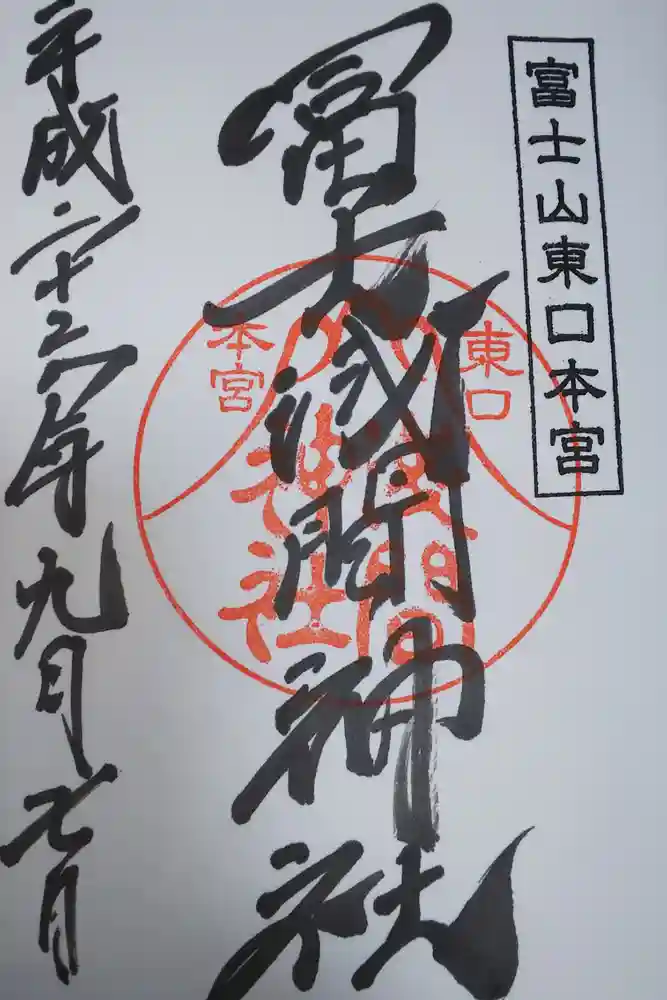 富士山東口本宮
冨士浅間神社
東口
本宮
浅間
神社
平成二十三年九月七日